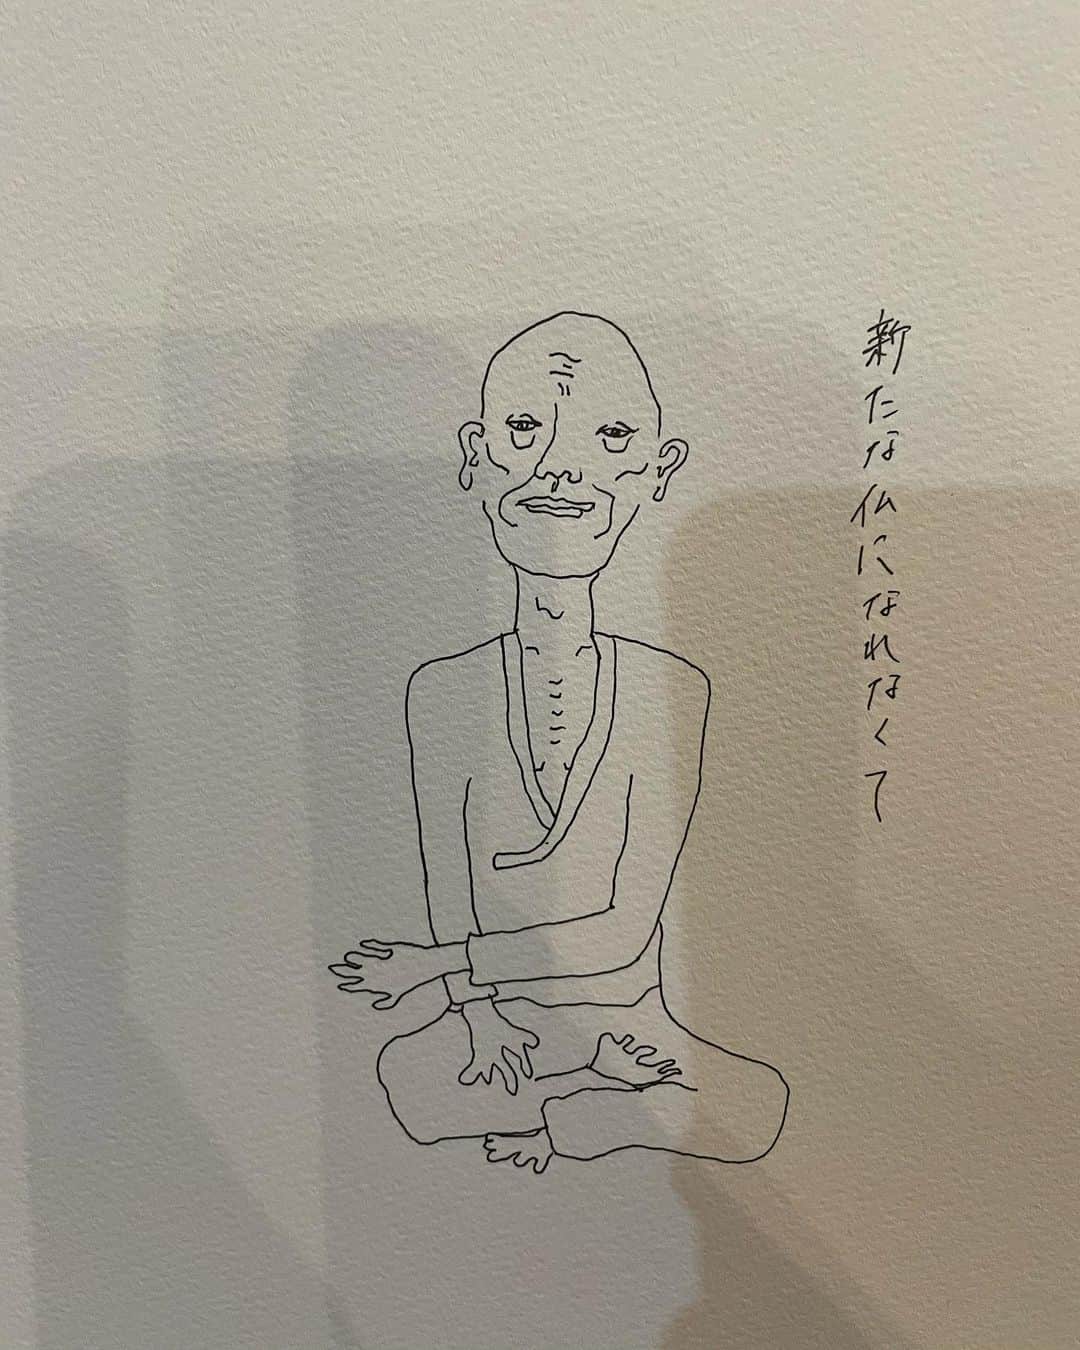 新たな仏になれなくて